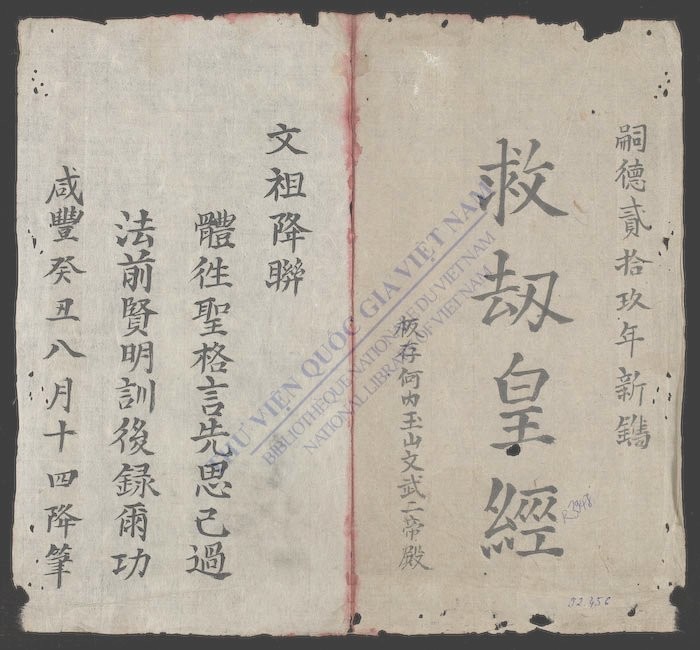 嗣德貳拾玖年新鐫
救刼皇經
板存何内玉山文武二帝殿
文祖降聯
體徃聖格言先思己過
法前賢明訓後録爾功
咸豐癸丑八月十四降筆
THƯ VIỆN QUỐC GIA VIỆT NAM
BIBLIOTHÈQUE NATIONALE DU VIETNAM
NATIONAL LIBRARY OF VIETNAM